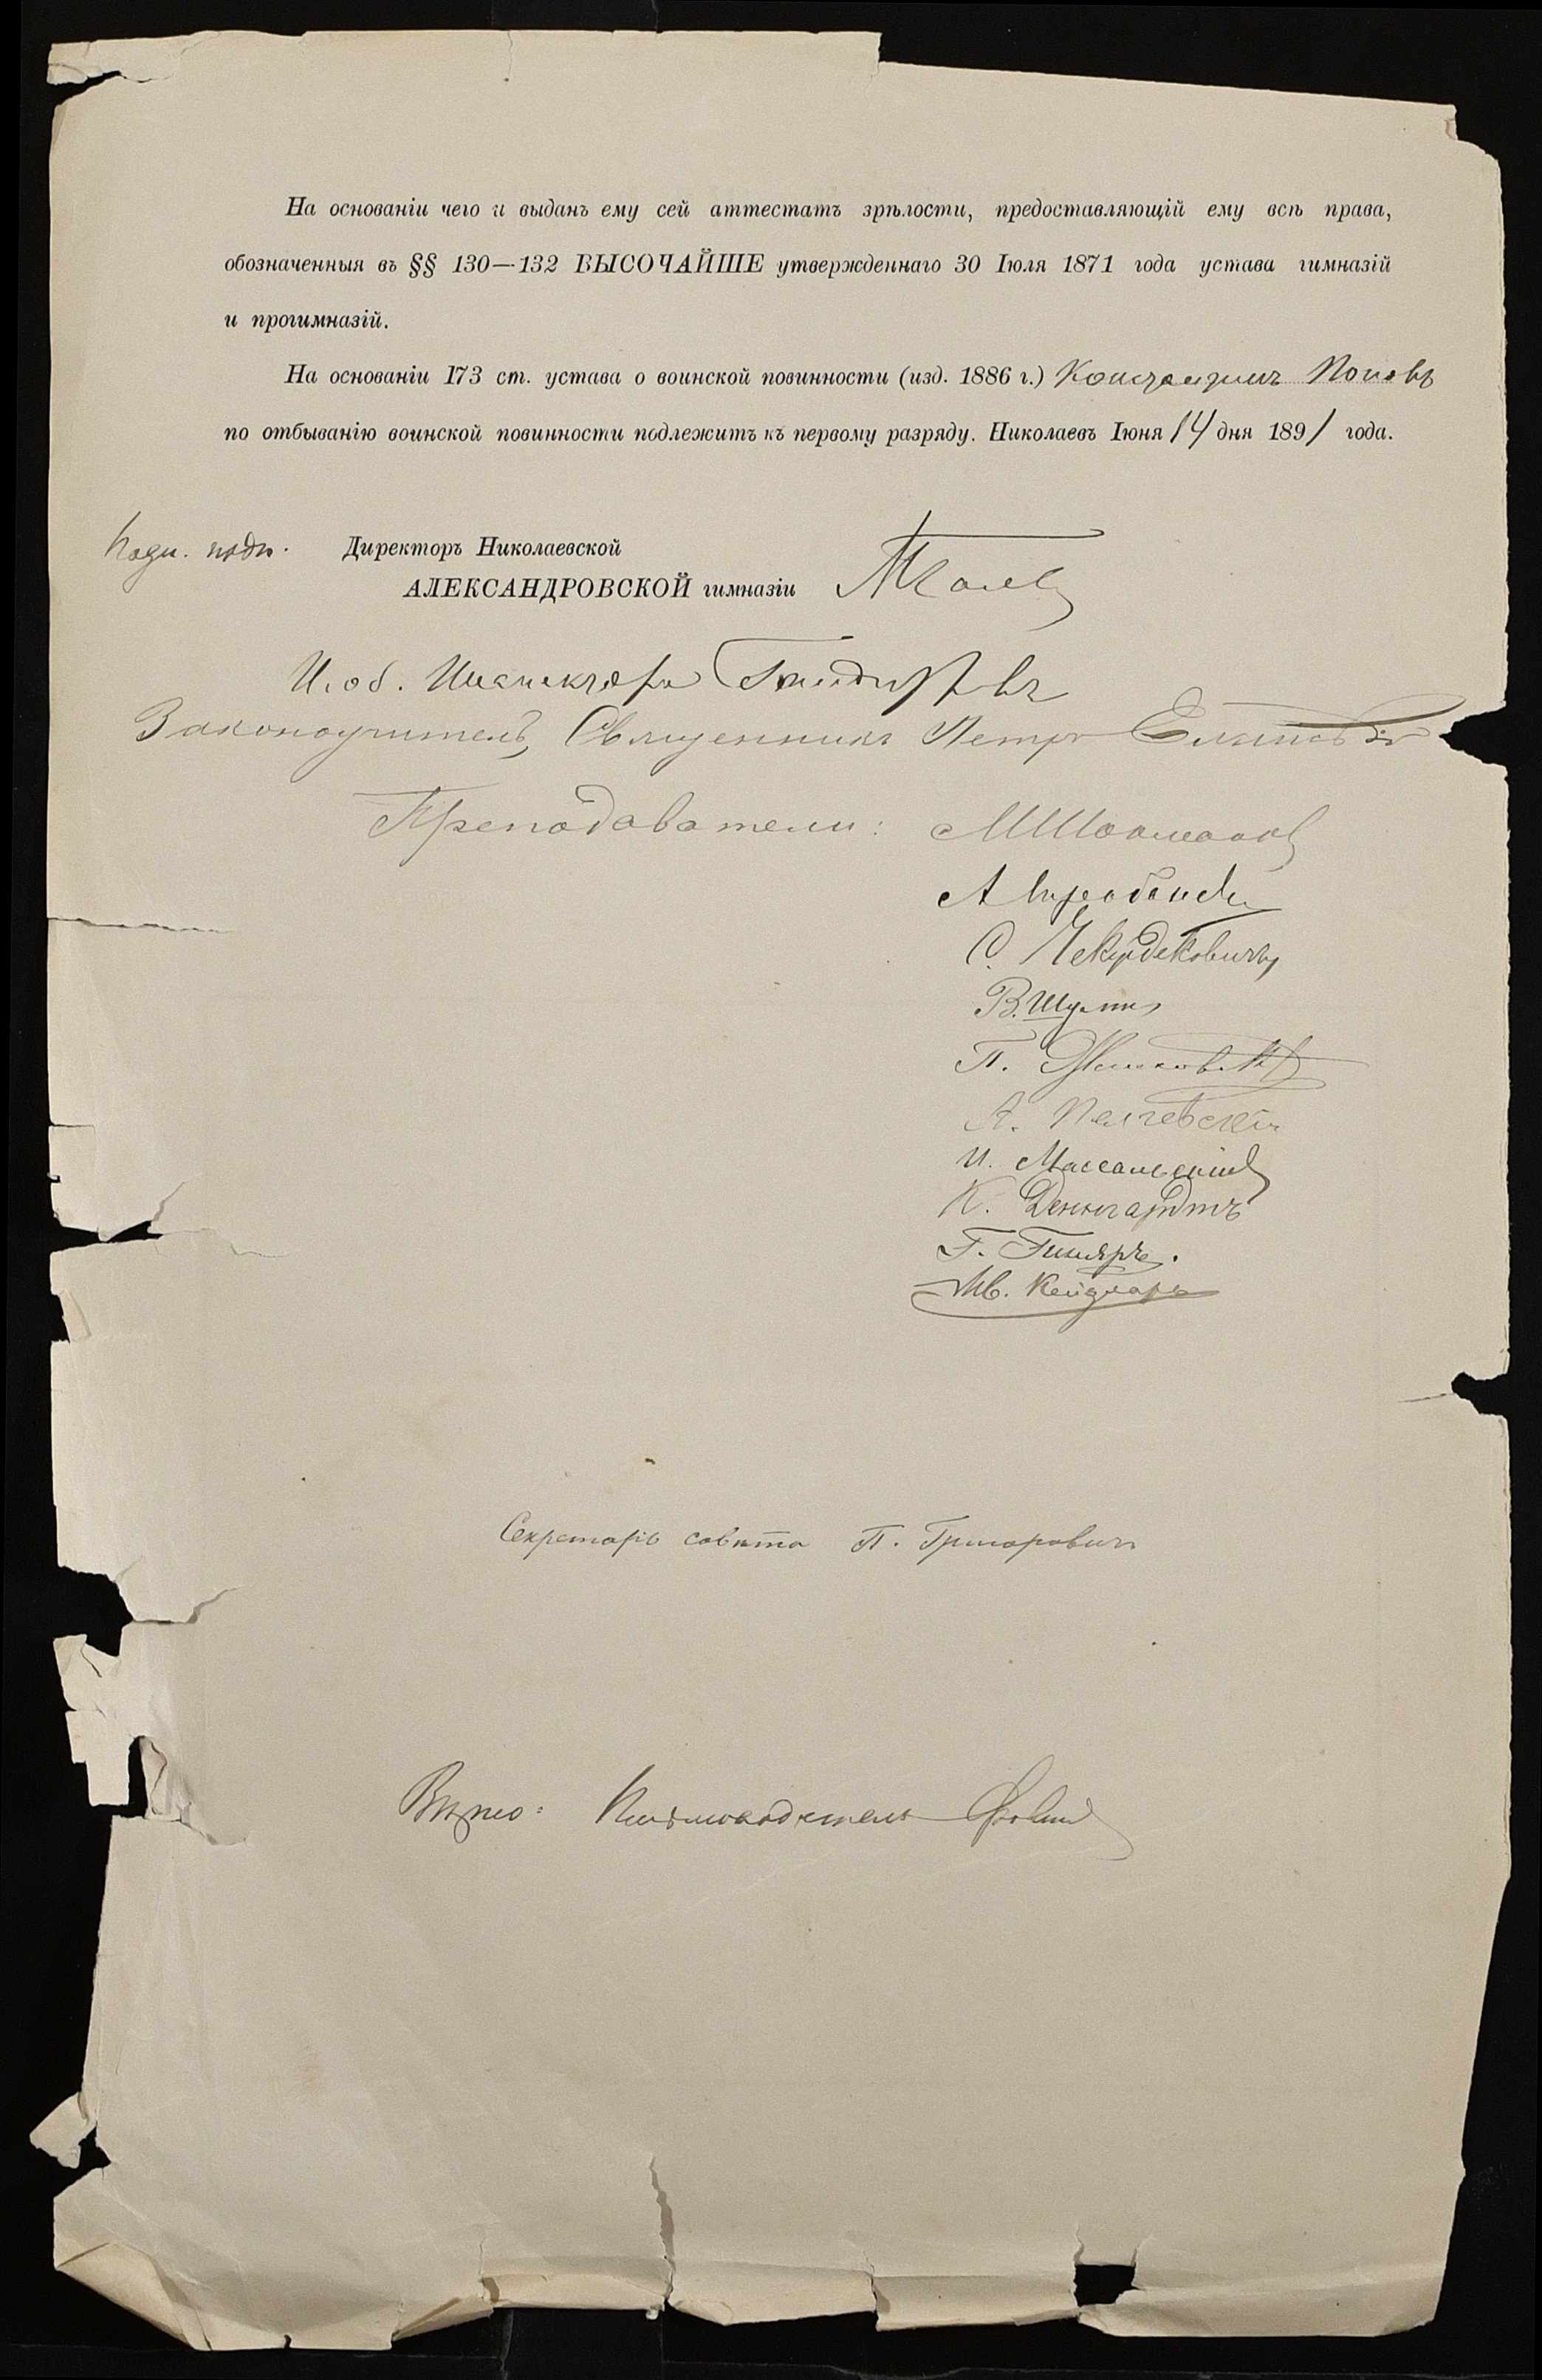 На основаніи чего и выданъ ему сей аттестатъ зрѣлости, предоставляющій ему всѣ права,
обозначенныя въ §§ 130—132 ВЫСОЧАЙШЕ утвержденнаго 30 Іюля 1871 года устава гимназій
и прогимназій.
На основаніи 173 ст. устава о воинской повинности (изд. 1886 г.) Константинъ Поповъ
по отбыванію воинской повинности подлежитъ къ первому разряду. Николаевъ Іюня 14 дня 1891 года.
Директоръ Николаевской
АЛЕКСАНДРОВСКОЙ гимназіи
И. об. Инспектора
Законоучитель, Священникъ Петръ
Преподаватели:
А
С.
В.
П.
А.
И. Массальскій
К. Деннгардтъ
Г.
Ив.
Секретарь совѣта П. Григоровичъ
Вѣрно: